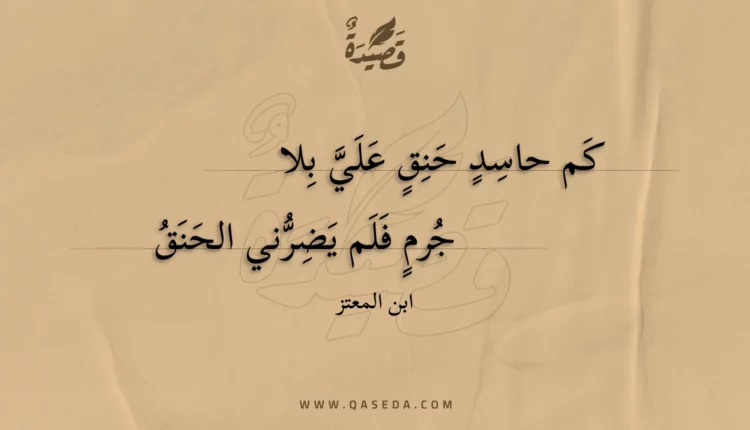 قَصِيدَةٌ
كَم حاسِدٍ حَنِقٍ عَلَيَّ بِلا
جُرمٍ فَلَم يَضِرُّني الحَنَقُ
ابن المعتز
WWW.QASEDA.COM